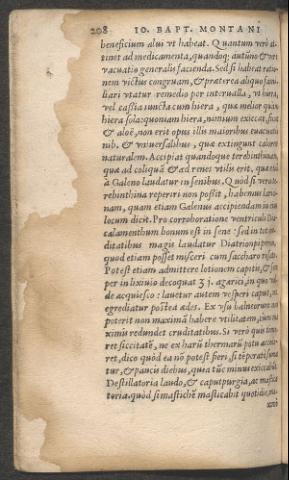 208 IO. BAPT. MONTANI
beneficium alui vt habeat. Quantum verò at-
tinet ad medicamenta, quandoq; autũno & veri
vacuatio generalis facienda. Sed si habeat ratio-
nem victus congruam, & præterea aliquo fami-
liari vtatur remedio per interualla, vt hiera,
vel cassia iuncta cum hiera, quæ melior quàm
hiera sola: quoniam hiera, nimium exiccat, sicut
& aloë, non erit opus illis maioribus euacuatio
nib. & vniuersalibus, quæ extingunt calorem
naturalem. Accipiat quandoque terebinthinam,
quæ ad coliquã & ad renes vtilis erit, quæ etiã
à Galeno laudatur in senibus. Quòd si vera te-
rebinthina reperiri non possit, habemus lauo-
nam, quam etiam Galenus accipiendam in eius
locum dicit. Pro corroboratione ventriculi Dia-
calamenthum bonum est in sene: sed in tot
ditatibus magis laudatur Diatrionpipereon,
quod etiam posset misceri cum saccharo rosato.
Potest etiam admittere lotionem capitis, & sem
per in lixiuio decoquat ʒ j. agarici, in quo val-
de acquiesco: lauetur autem vesperi caput, ne
egrediatur postea ædes. Ex vsu balneorum non
poterit non maximã habere vtilitatem, cùm ma
ximùs redundet cruditatibus. Si verò quis time-
ret siccitatẽ, ne ex harũ thermarũ potu accide-
ret, dico quòd ea nõ potest fieri, si tẽperatè suma
tur, & paucis diebus, quia tũc minus exiccabit.
Destillatoria laudo, & caputpurgia, ac mastica
toria. quòd si mastichẽ masticabit quotidie,